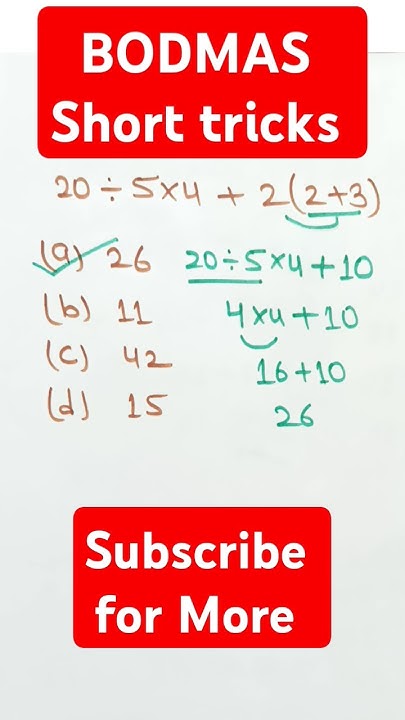 BODMAS
Short tricks
20÷5×4 + 2(2+3)
(a) 26 20÷5×4+10
(b) 11 4×4+10
(c) 42 16+10
(d) 15 26
Subscribe
for More